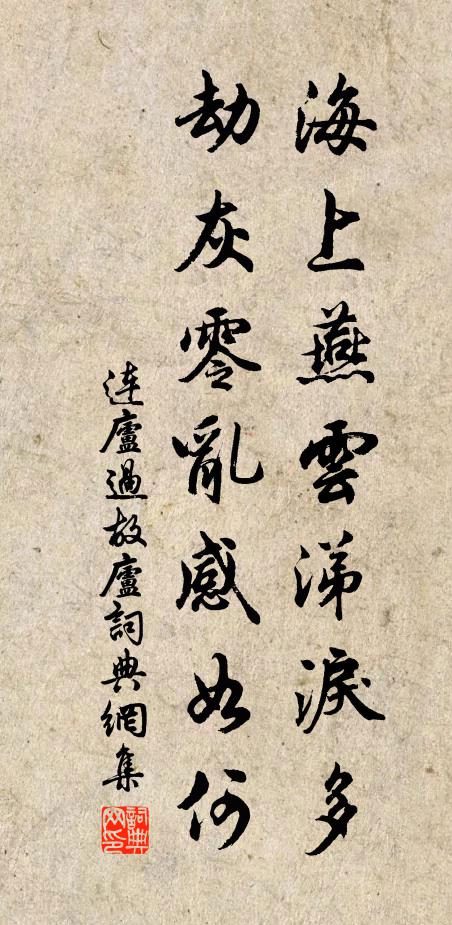 海上燕雲涕淚多
劫灰零亂感如何
連廬過故廬詞典網集
詞典網印